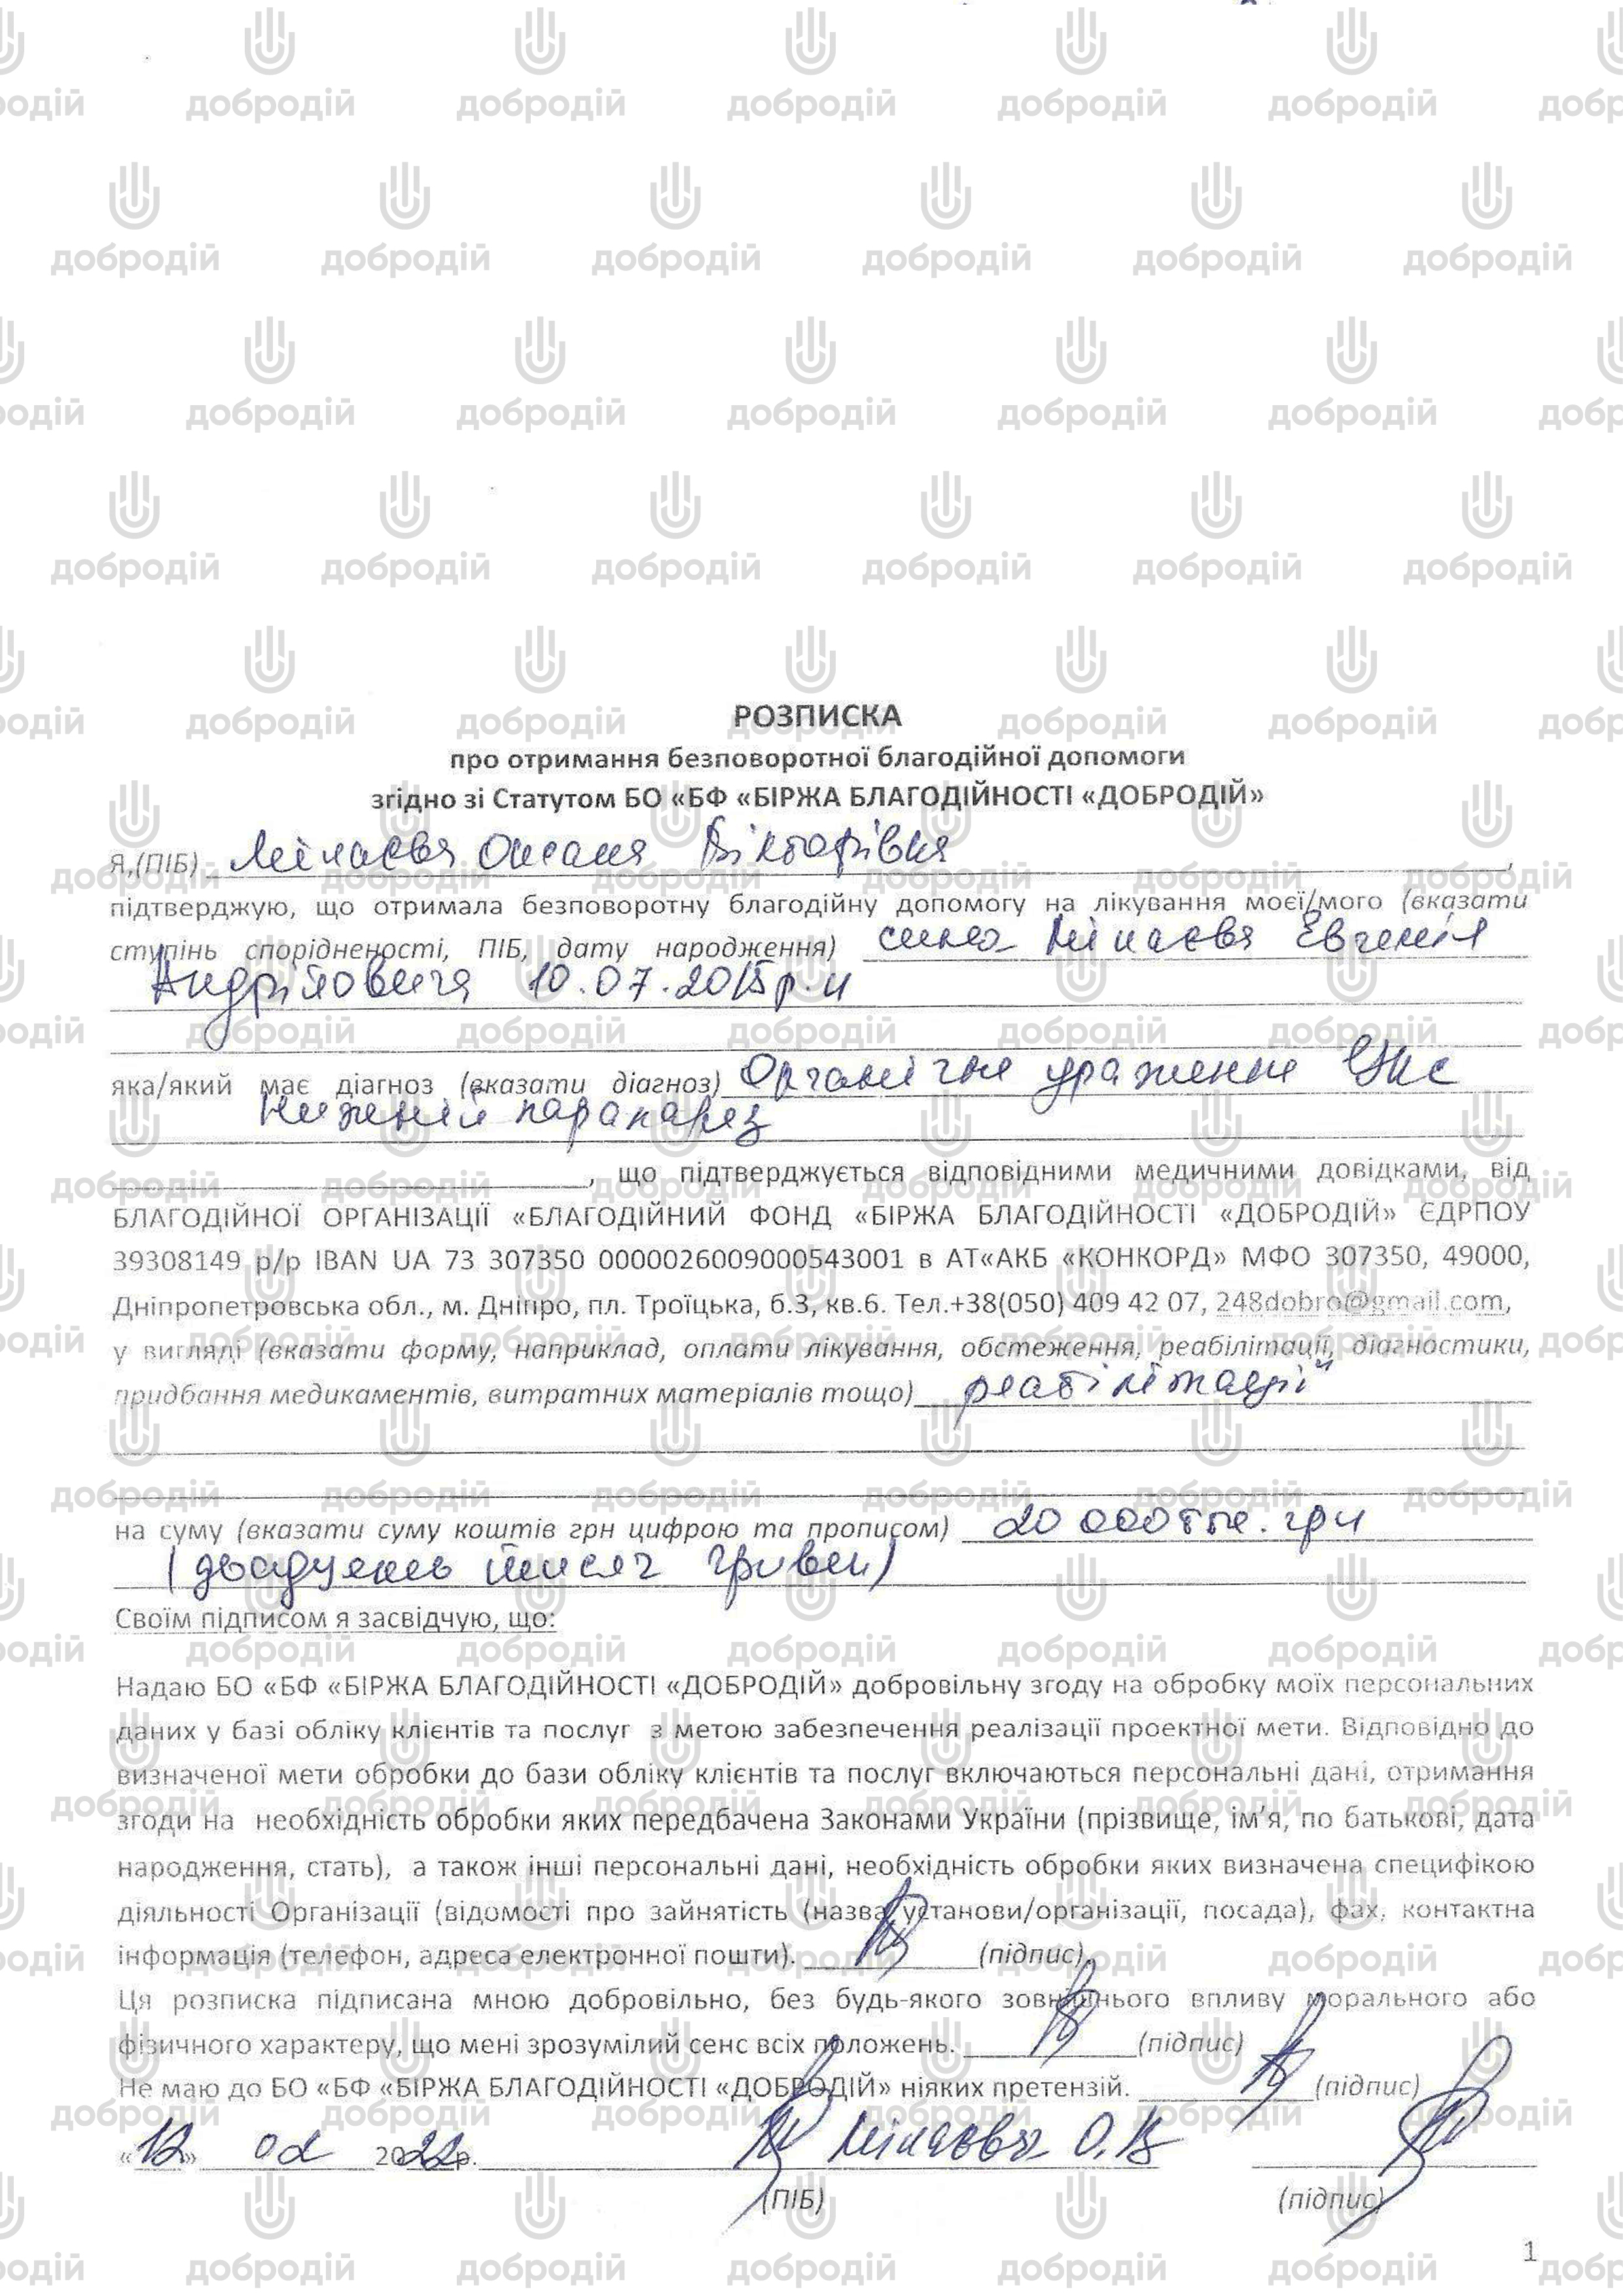 РОЗПИСКА
про отримання безповоротної благодійної допомоги
згідно зі Статутом БО «БФ «БІРЖА БЛАГОДІЙНОСТІ «ДОБРОДІЙ»
Я,(ПІБ) Мінаєва Оксана Вікторівна,
підтверджую, що отримала безповоротну благодійну допомогу на лікування моєї/мого (вказати
ступінь спорідненості, ПІБ, дату народження) сина Мінаєва Євгенія
Андрійовича 10.07.2015р.н
яка/який має діагноз (вказати діагноз) Органічне ураження ЦНС
Нижній парапарез
, що підтверджується відповідними медичними довідками, від
БЛАГОДІЙНОЇ ОРГАНІЗАЦІЇ «БЛАГОДІЙНИЙ ФОНД «БІРЖА БЛАГОДІЙНОСТІ «ДОБРОДІЙ» ЄДРПОУ
39308149 р/р IBAN UA 73 307350 0000026009000543001 в АТ«АКБ «КОНКОРД» МФО 307350, 49000,
Дніпропетровська обл., м. Дніпро, пл. Троїцька, б.3, кв.6. Тел.+38(050) 409 42 07, 248dobro@gmail.com,
у вигляді (вказати форму, наприклад, оплати лікування, обстеження, реабілітації, діагностики,
придбання медикаментів, витратних матеріалів тощо) реабілітації
на суму (вказати суму коштів грн цифрою та прописом) 20 000 тис. грн
(двадцять тисяч гривен)
Своїм підписом я засвідчую, що:
Надаю БО «БФ «БІРЖА БЛАГОДІЙНОСТІ «ДОБРОДІЙ» добровільну згоду на обробку моїх персональних
даних у базі обліку клієнтів та послуг з метою забезпечення реалізації проектної мети. Відповідно до
визначеної мети обробки до бази обліку клієнтів та послуг включаються персональні дані, отримання
згоди на необхідність обробки яких передбачена Законами України (прізвище, ім’я, по батькові, дата
народження, стать), а також інші персональні дані, необхідність обробки яких визначена специфікою
діяльності Організації (відомості про зайнятість (назва установи/організації, посада), фах, контактна
інформація (телефон, адреса електронної пошти). (підпис).
Ця розписка підписана мною добровільно, без будь-якого зовнішнього впливу морального або
фізичного характеру, що мені зрозумілий сенс всіх положень. (підпис)
Не маю до БО «БФ «БІРЖА БЛАГОДІЙНОСТІ «ДОБРОДІЙ» ніяких претензій. (підпис)
«12» 02 2022р. Мінаєва О.В
(ПІБ) (підпис)
1